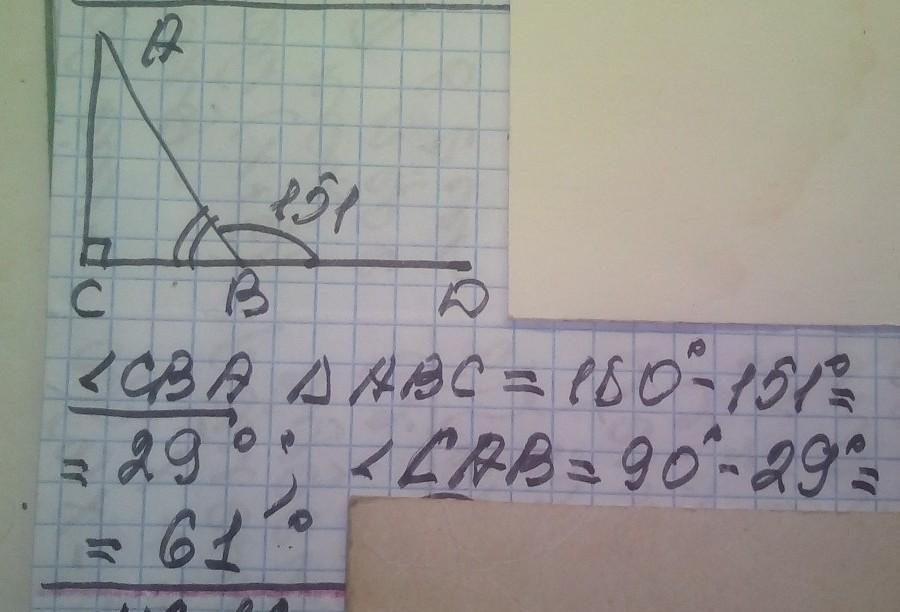 A
151
C B D
<CBA ΔABC = 180°-151°=
= 29°; <CAB = 90°-29°=
= 61°